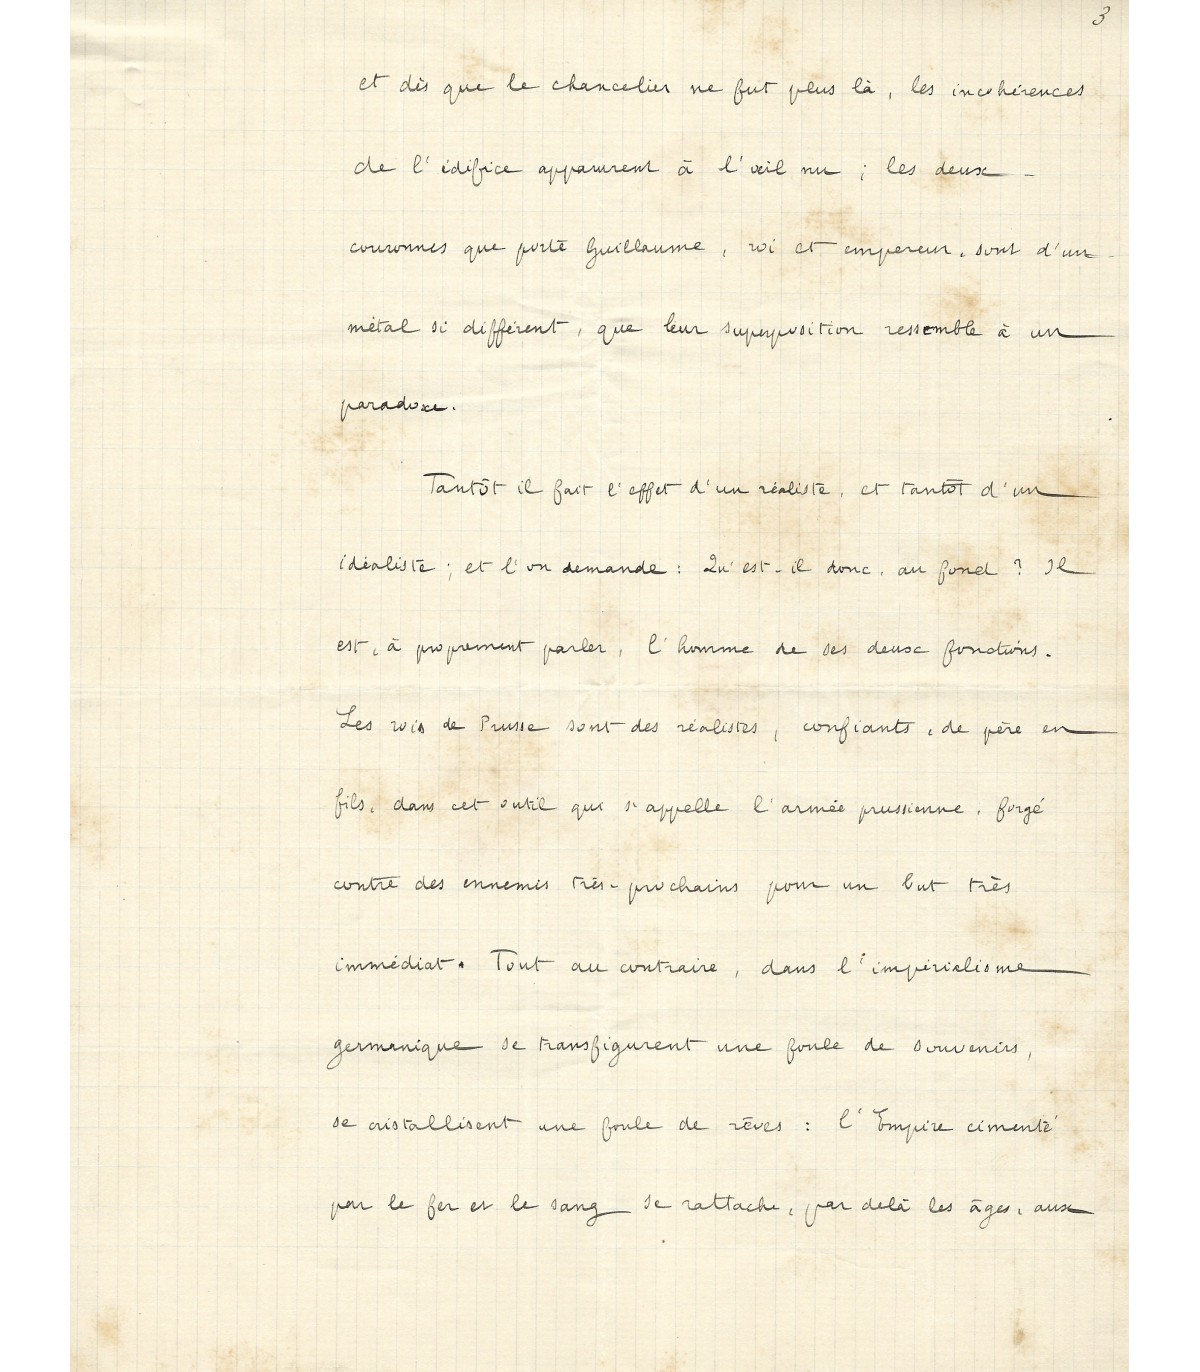 3
et dès que le chancelier ne fut plus là, les incohérences
de l'édifice apparurent à l'œil nu ; les deux
couronnes que porte Guillaume, roi et empereur, sont d'un
métal si différent, que leur superposition ressemble à un
paradoxe.
Tantôt il fait l'effet d'un réaliste, et tantôt d'un
idéaliste ; et l'on demande : Qu'est-il donc, au fond ? Il
est, à proprement parler, l'homme de ses deux fonctions.
Les rois de Prusse sont des réalistes, confiants, de père en
fils, dans cet outil qui s'appelle l'armée prussienne, forgé
contre des ennemis très-prochains pour un but très
immédiat. Tout au contraire, dans l'impérialisme
germanique se transfigurent une foule de souvenirs,
se cristallisent une foule de rêves : l'Empire cimenté
par le fer et le sang se rattache, par delà les âges, aux